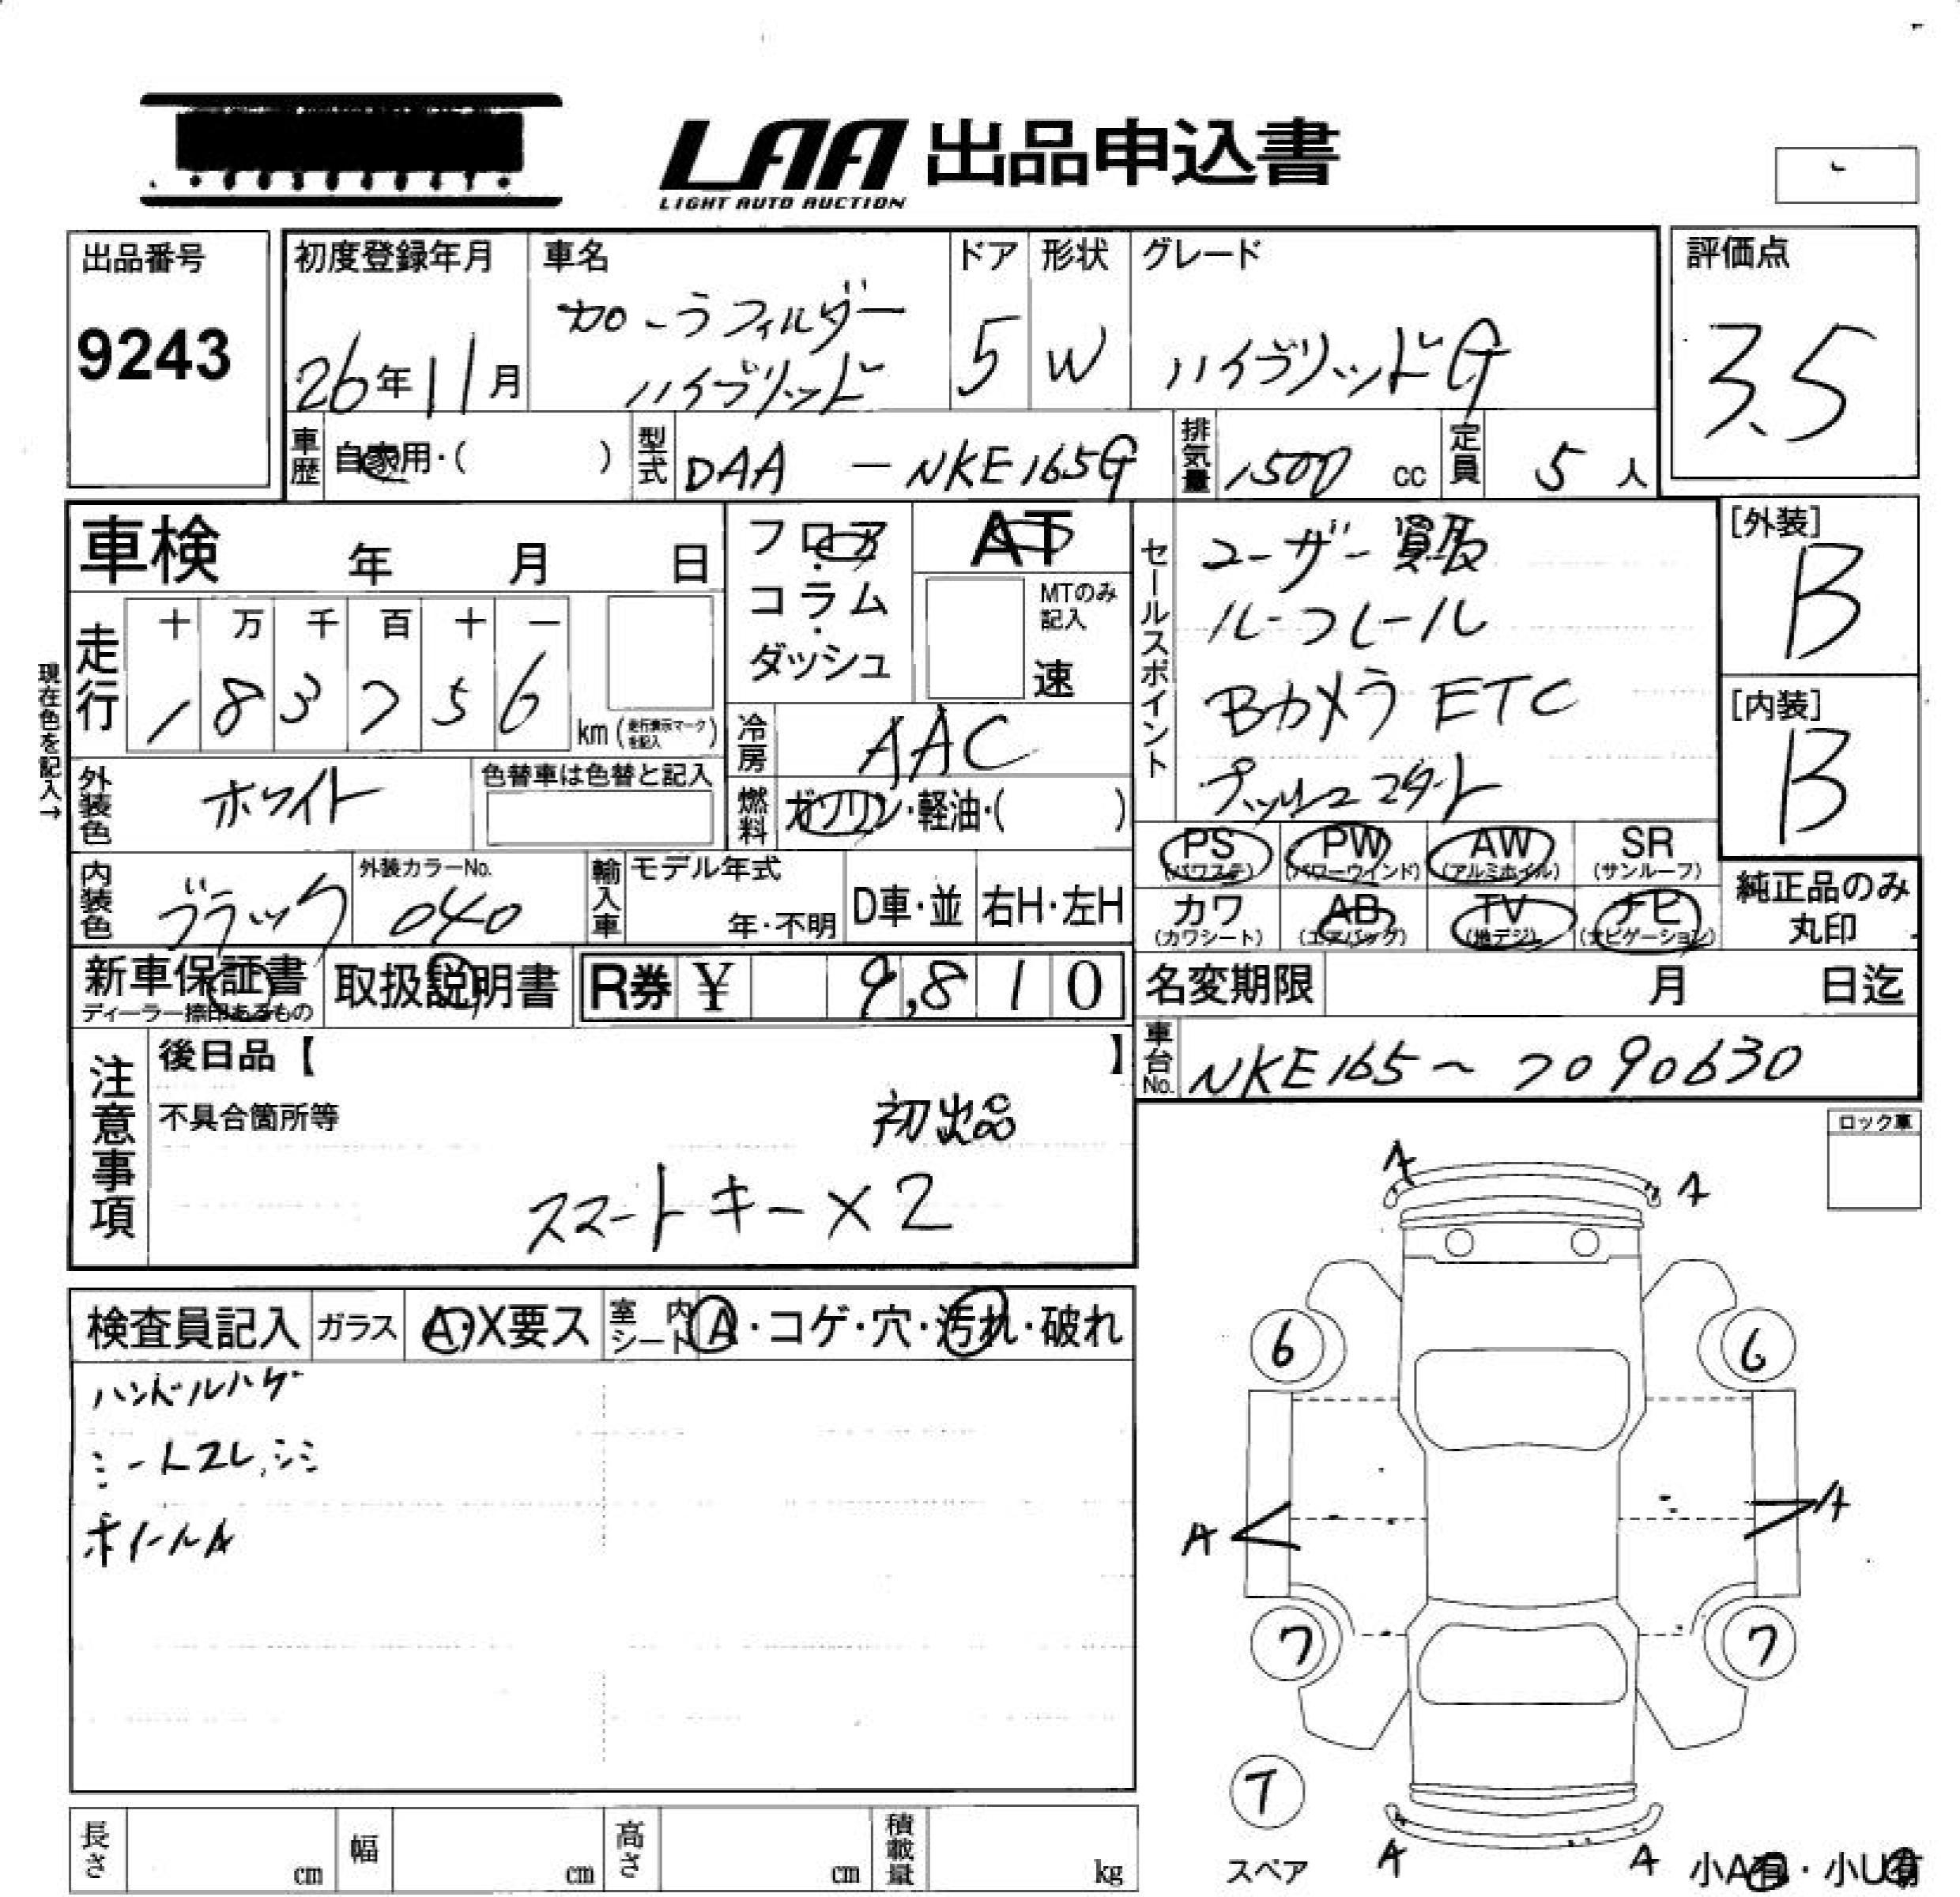 LAA 出品申込書
LIGHT AUTO AUCTION
出品番号
9243
初度登録年月
26年11月
車名
カローラフィルダー
ハイブリッド
ドア
5
形状
W
グレード
ハイブリッドG
評価点
3.5
車歴
自家用・( )
型式
DAA - NKE165G
排気量
1500 cc
定員
5 人
車検 年 月 日
走行
十 万 千 百 十 一
1 8 3 7 5 6
km (走行表示マークを記入)
現在色を記入→
外装色
ホワイト
色替車は色替と記入
内装色
ブラック
外装カラーNo.
040
フロア
・
コラム
・
ダッシュ
AT
MTのみ
記入
速
冷房
AAC
燃料
ガソリン・軽油・( )
輸入車
モデル年式
年・不明
D車・並
右H・左H
セールスポイント
ユーザー買取
ルーフレール
Bカメラ ETC
プッシュスタート
[外装]
B
[内装]
B
PS
(パワステ)
PW
(パワーウインド)
AW
(アルミホイル)
SR
(サンルーフ)
カワ
(カワシート)
AB
(エアバッグ)
TV
(地デジ)
ナビ
(ナビゲーション)
純正品のみ
丸印
新車保証書
ディーラー捺印あるもの
取扱説明書
R券 ¥ 9,810
名変期限 月 日迄
車台No.
NKE165~7090630
注意事項
後日品【 】
不具合箇所等
初出品
スマートキー×2
ロック車
検査員記入
ガラス
A・X要ス
室内
シート
A・コゲ・穴・汚れ・破れ
ハンドルハゲ
シートスレ,シミ
ホイールA
A
A
6
6
A
A
7
7
T
スペア
A
A
小A有・小U有
長さ cm
幅 cm
高さ cm
積載量 kg